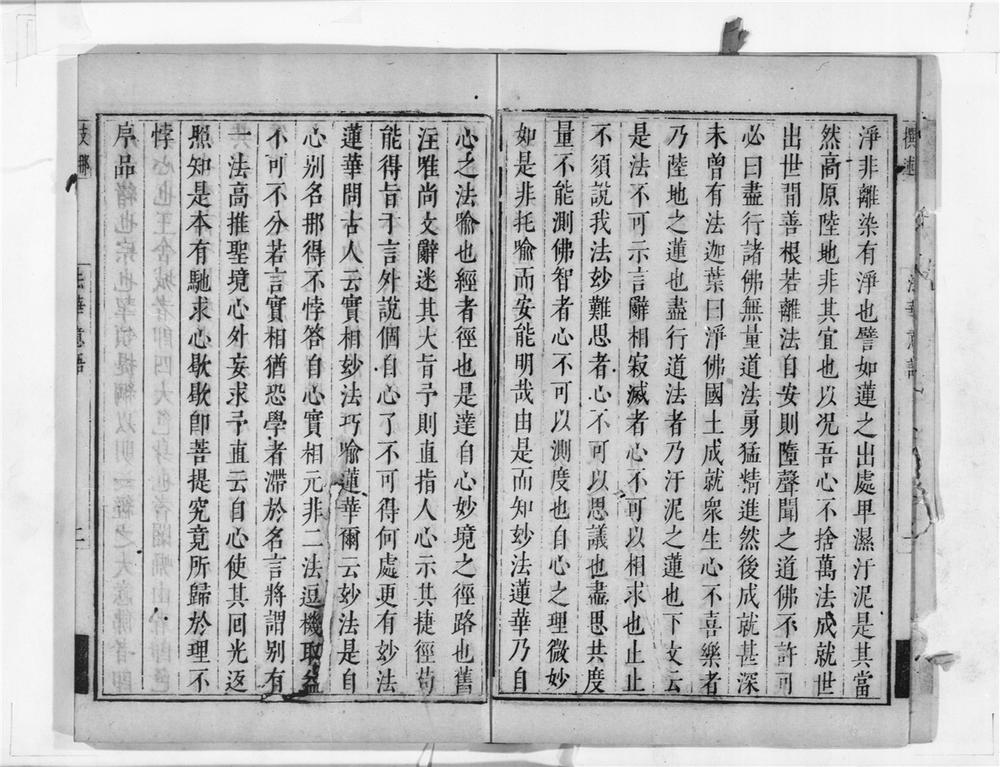 淨非離染有淨也譬如蓮之出處卑濕汙泥是其當
然高原陸地非其宜也以况吾心不捨萬法成就世
出世間善根若離法自安則墮聲聞之道佛不許可
必曰盡行諸佛無量道法勇猛精進然後成就甚深
未曾有法迦葉曰淨佛國土成就衆生心不喜樂者
乃陸地之蓮也盡行道法者乃汙泥之蓮也下文云
是法不可示言辭相寂滅者心不可以相求也止止
不須說我法妙難思者心不可以思議也盡思共度
量不能測佛智者心不可以測度也自心之理微妙
如是非托喻而安能明哉由是而知妙法蓮華乃自
心之法喻也經者徑也是達自心妙境之徑路也舊
注唯尚文辭迷其大旨予則直指人心示其捷徑苟
能得旨于言外說個自心了不可得何處更有妙法
蓮華問古人云實相妙法巧喻蓮華爾云妙法是自
心别名那得不悖答自心實相元非二法逗機取益
不可不分若言實相猶恐學者滯於名言將謂别有
一法高推聖境心外妄求予直云自心使其回光返
照知是本有馳求心歇歇卽菩提究竟所歸於理不
悖
序品
法華意語